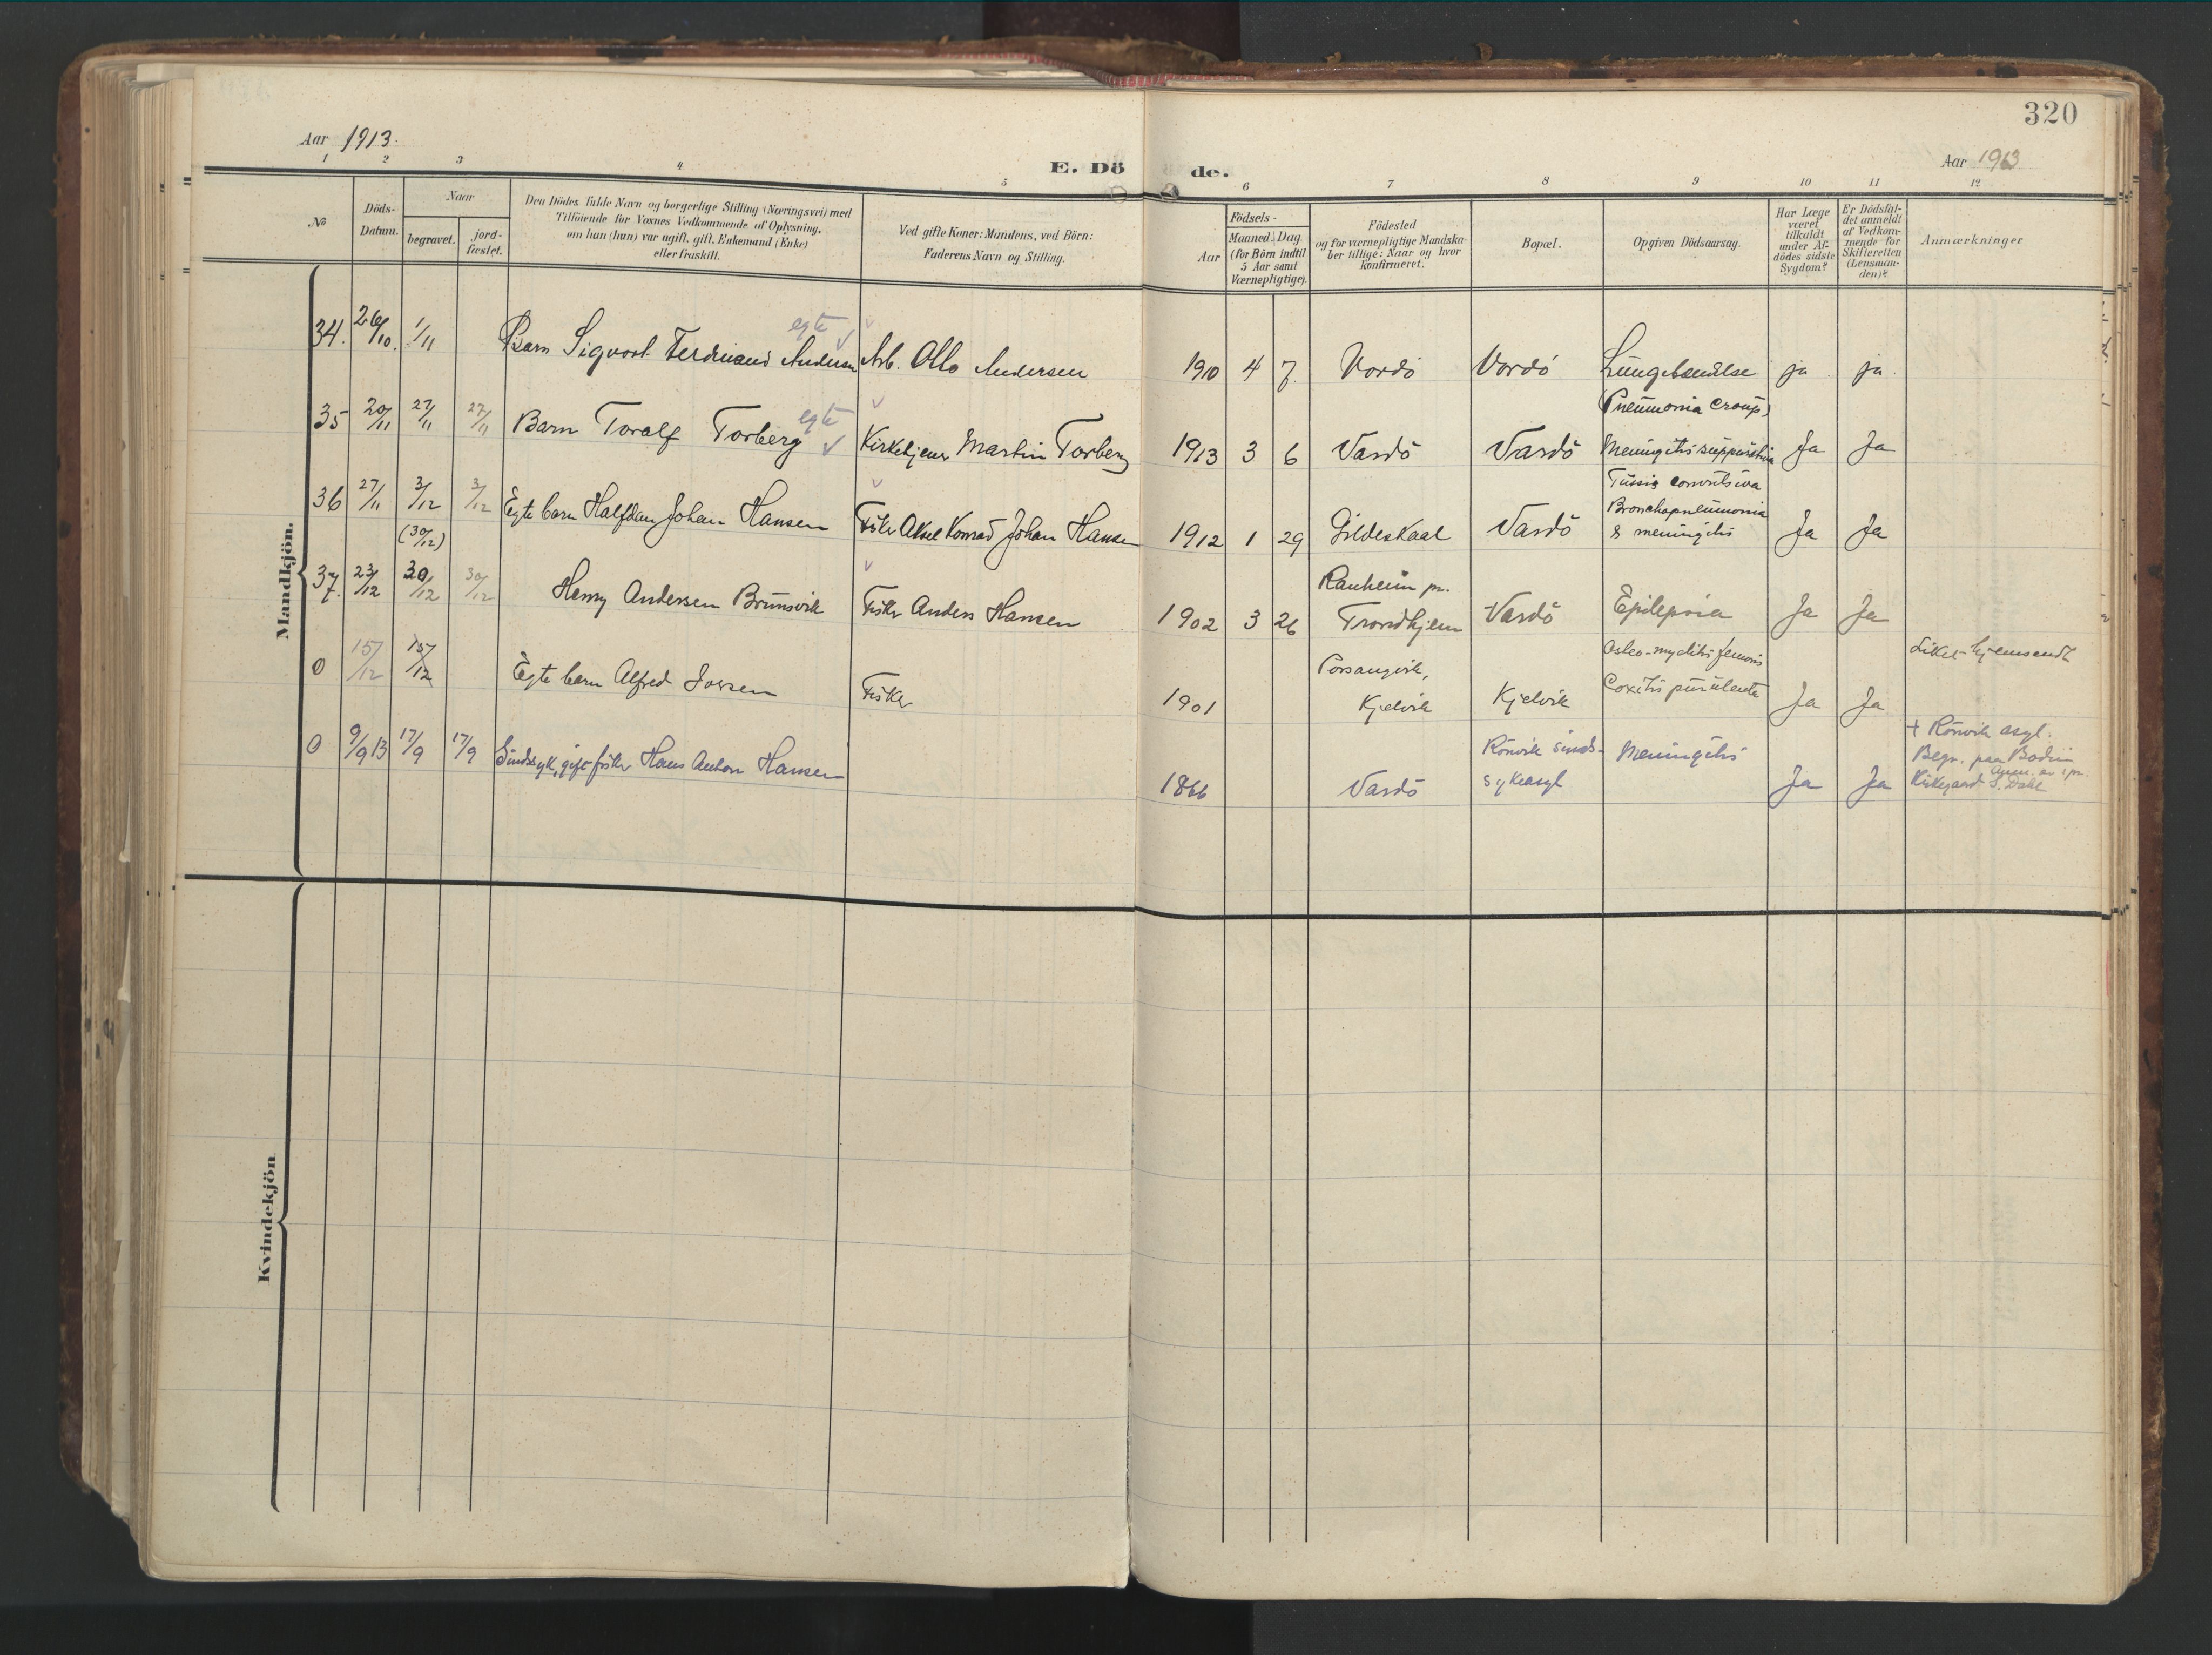 320
Aar 1913.
E. Dö de.
Aar 1913
1 2 3 4 5 6 7 8 9 10 11 12
No
Döds-Datum.
Naar
begravet.
jord-fæstet.
Den Dödes fulde Navn og borgerlige Stilling (Næringsvei) med
Tilföiende for Voxnes Vedkommende af Oplysning,
om han (hun) var ugift, gift, Enkemand (Enke)
eller fraskilt.
Ved gifte Koner: Mandens, ved Börn:
Faderens Navn og Stilling.
Födsels-
Aar
Maaned. Dag
(for Börn indtil
5 Aar samt
Værnepligtige).
Födested
og for værnepligtige Mandska-
ber tillige: Naar og hvor
konfirmeret.
Bopæl.
Opgiven Dödsaarsag.
Har Læge
været
tilkaldt
under Af-
dödes sidste
Sygdom?
Er Dödsfal-
det anmeldt
af Vedkom-
mende for
Skifteretten
(Lensman-
den)?
Anmærkninger
Mandkjön.
egte
34. 26/10. 1/11 Barn Sigvart Ferdinand Andersen Arb. Otto Andersen 1910 4 7. Vardö Vardö Lungebetændelse ja ja
(Pneumonia croup.)
egte
35 20/11 27/11 27/11 Barn Toralf Torberg Kirketjener Martin Torberg 1913 3 6 Vardö Vardö Meningitis suppurativa Ja Ja
Tussis convulsiva
36 27/11 3/12 3/12 Egte barn Halfdan Johan Hansen Fisker Aksel Konrad Johan Hansen 1912 1 29 Gildeskaal Vardö Bronchopneumonia
& meningitis Ja Ja
(30/12)
37. 23/12 30/12 30/12 Henry Andersen Brunsvik Fisker Anders Hansen 1902 3 26 Ranheim pr.
Trondhjem Vardö Epilepsia Ja Ja
0 15/12 15/12 Egte barn Alfred Fisker 1901 Porsangvik,
Kjelvik Kjelvik Osteo-myelitis femoris
Coxitis purulenta Ja Ja Liket hjemsendt
0 9/9 13 17/9 17/9 Sindssyk, gift fisker Hans Anton Hansen 1866 Vardö Rönvik sinds-
sykeasyl Meningitis Ja Ja + Rönvik asyl.
Begr. paa Bodin
Kirkegaard S. Dahl
Kvindekjön